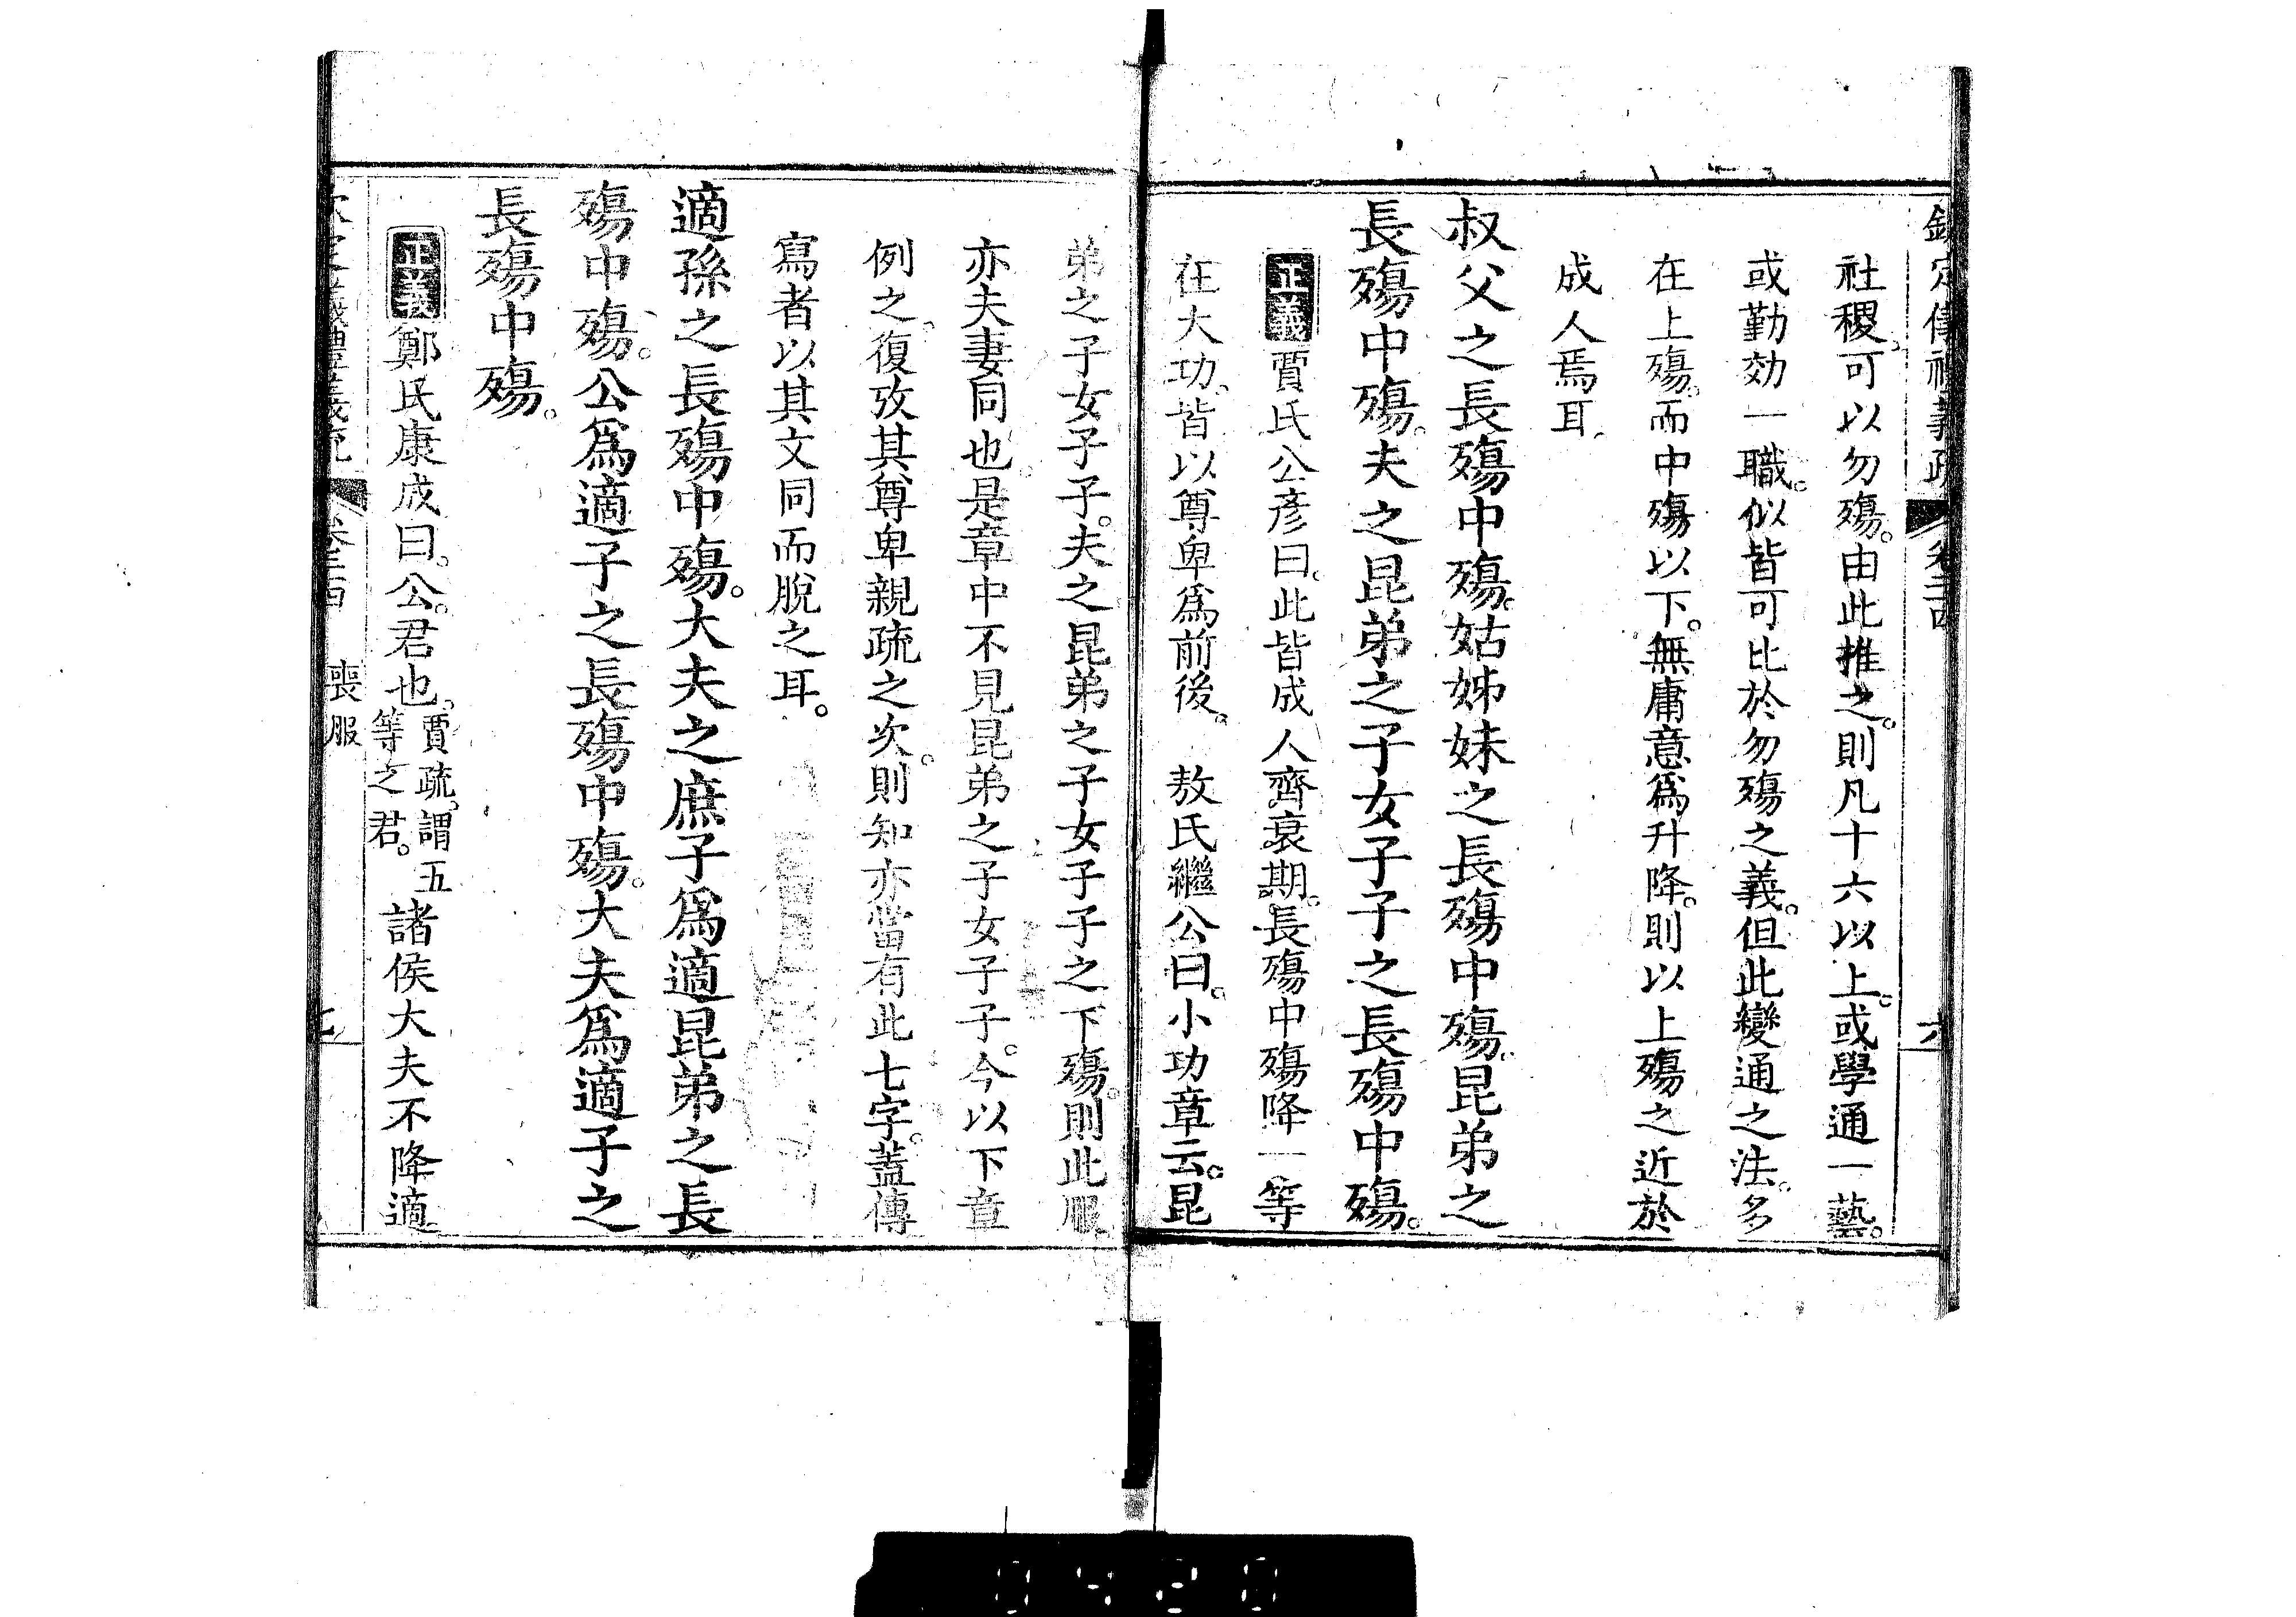 欽定儀禮義疏 卷二十四 六
社稷可以勿殤。由此推之。則凡十六以上。或學通一藝。
或勤効一職。似皆可比於勿殤之義。但此變通之法。多
在上殤。而中殤以下。無庸意爲升降。則以上殤之近於
成人焉耳。
叔父之長殤中殤。姑姊妹之長殤中殤。昆弟之
長殤中殤。夫之昆弟之子女子子之長殤中殤。
正義賈氏公彥曰。此皆成人齊衰期。長殤中殤降一等
在大功。皆以尊卑爲前後。 敖氏繼公曰。小功章云。昆
弟之子女子子。夫之昆弟之子女子子之下殤。則此服
亦夫妻同也。是章中不見昆弟之子女子子。今以下章
例之。復攷其尊卑親疏之次。則知亦當有此七字。蓋傳
寫者以其文同而脫之耳。
適孫之長殤中殤。大夫之庶子爲適昆弟之長
殤中殤。公爲適子之長殤中殤。大夫爲適子之
長殤中殤。
正義鄭氏康成曰。公。君也。賈疏。謂五等之君。諸侯大夫不降適。
欽定儀禮義疏 卷二十四 喪服 七
0420